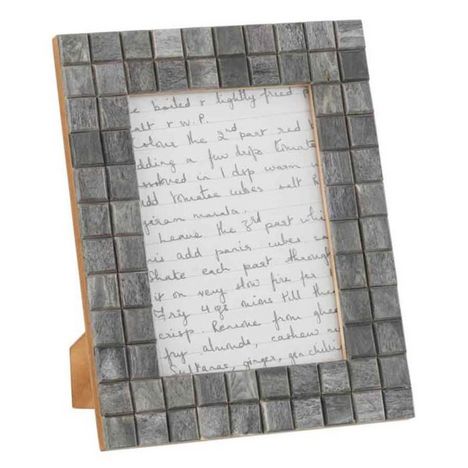 boiled & lightly fried p
alt & w.P.
olour the 2nd part red
dding a few drops tomato
ssolved in 1 dsp warm
dd tomatoe cubes salt &
garam masala.
Leave the 3rd part whi
is add panir cubes sa
Shake each part through
it on very slow fire for
Fry 4 oz onions till th
crisp. Remove from ghe
fry almonds, cashew nu
Sultanas, ginger, gn chilli